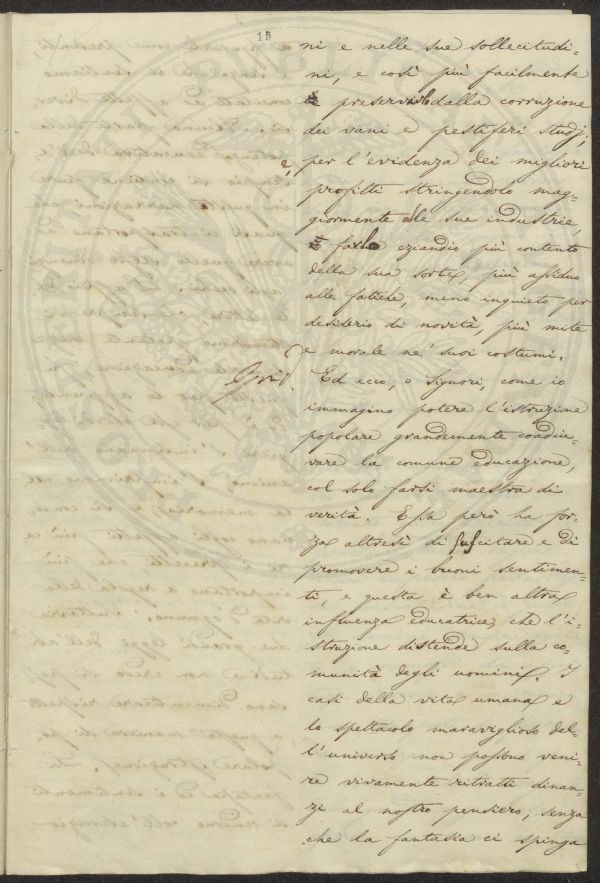 15
ni e nelle sue sollecitudi=
ni, e così più facilmente
preservarlo dalla corruzione
dei vani e pestiferi studj;
e, per l'evidenza dei migliori
profitti stringendolo mag=
giormente alle sue industrie,
farlo eziandio più contento
della sua sorte, più assiduo
alle fatiche, meno inquieto per
desiderio di novità, più mite
e morale ne' suoi costumi.
Ed ecco, o Signori, come io
immagino potere l'istruzione
popolare grandemente coadiu=
vare la comune educazione,
col solo farsi maestra di
verità. Essa però ha for=
za altresì di suscitare e di
promovere i buoni sentimen=
ti, e questa è ben altra
influenza educatrice, che l'i=
struzione distende sulla co=
munità degli uomini. I
casi della vita umana e
lo spettacolo maraviglioso del=
l'universo non possono veni=
re vivamente ritratti dinan=
zi al nostro pensiero, senza
che la fantasia ci spinga